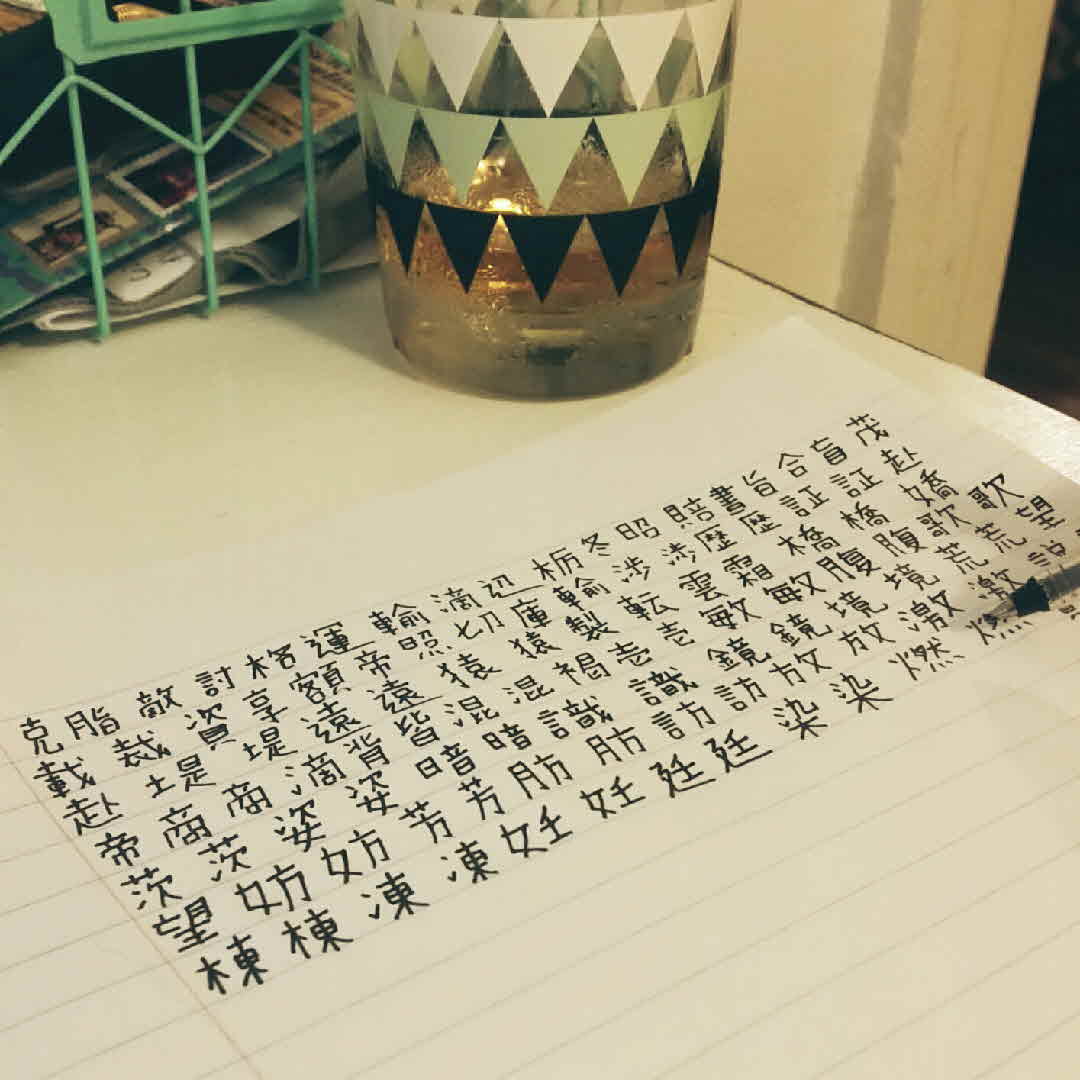 克脂敵討格運輸滴辺栃冬昭賠書旨合盲茂
載裁資享額帝照切庫輸渉渉歴歴証証赴
赴堤堤遠遠猿猿製転雲霜橋橋嬌
帝商商滴背皆混混褐壱壱敏敏腹腹歌歌
茨茨姿姿暗暗識識鏡鏡境境荒荒望
望妨妨芳芳肪肪訪訪放放激激説
棟棟凍凍妊妊廷廷染染燃燃